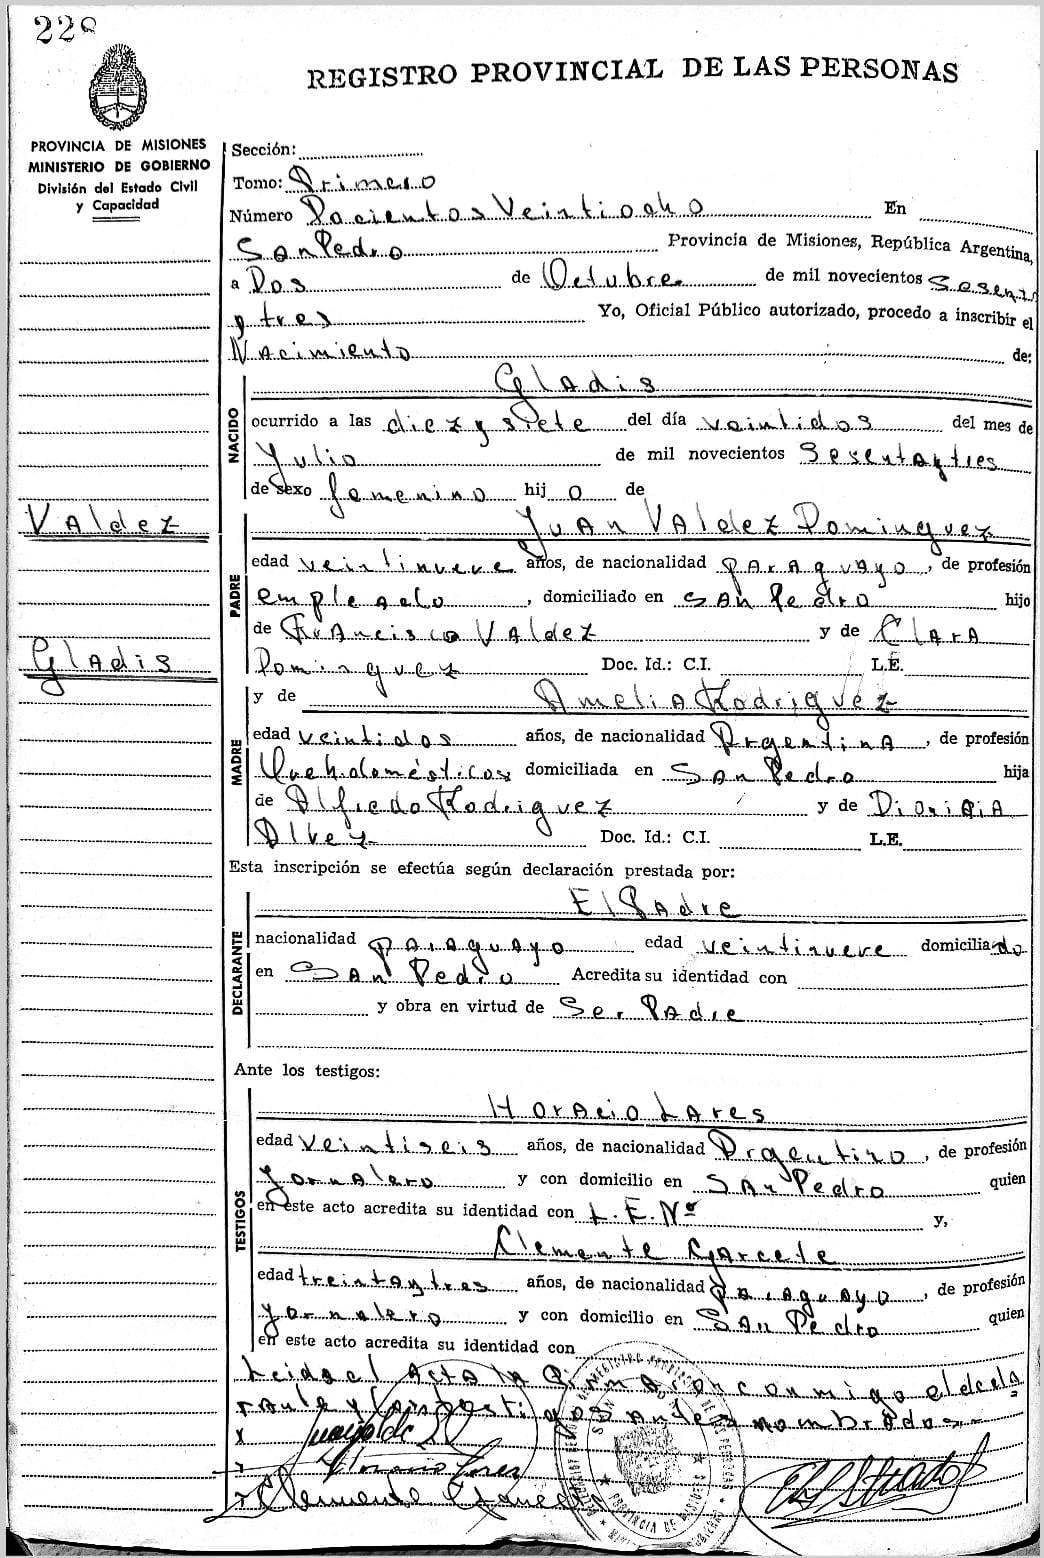 228
REGISTRO PROVINCIAL DE LAS PERSONAS
PROVINCIA DE MISIONES
MINISTERIO DE GOBIERNO
División del Estado Civil
y Capacidad
Valdez
Gladis
Sección:
Tomo: Primero
Número Docientos Veintiocho En
San Pedro Provincia de Misiones, República Argentina,
a Dos de Octubre de mil novecientos Sesenta
y tres Yo, Oficial Público autorizado, procedo a inscribir el
Nacimiento de:
NACIDO
Gladis
ocurrido a las diez y siete del día veintidos del mes de
Julio de mil novecientos Sesentaytres
de sexo femenino hij o de
PADRE
Juan Valdez Dominguez
edad veintinueve años, de nacionalidad paraguayo, de profesión
empleado, domiciliado en San Pedro hijo
de Francisco Valdez y de Clara
Dominguez Doc. Id.: C.I. L.E.
MADRE
y de Amelia Rodriguez
edad veintidos años, de nacionalidad Argentina, de profesión
Quehdomésticos domiciliada en San Pedro hija
de Alfredo Rodriguez y de Dionicia
Alvez Doc. Id.: C.I. L.E.
Esta inscripción se efectúa según declaración prestada por:
DECLARANTE
El Padre
nacionalidad paraguayo edad veintinueve domiciliado
en San Pedro Acredita su identidad con
y obra en virtud de Ser Padre
Ante los testigos:
TESTIGOS
Horacio Lares
edad veintiseis años, de nacionalidad Argentino, de profesión
Jornalero y con domicilio en San Pedro quien
en este acto acredita su identidad con L.E.Nº y,
Clemente Garcete
edad treintaytres años, de nacionalidad paraguayo, de profesión
Jornalero y con domicilio en San Pedro quien
en este acto acredita su identidad con
Leida el Acta la firmaron conmigo el decla
rante y los testigos antes nombrados
x
Horacio Lares
Clemente
PROVINCIA DE MISIONES